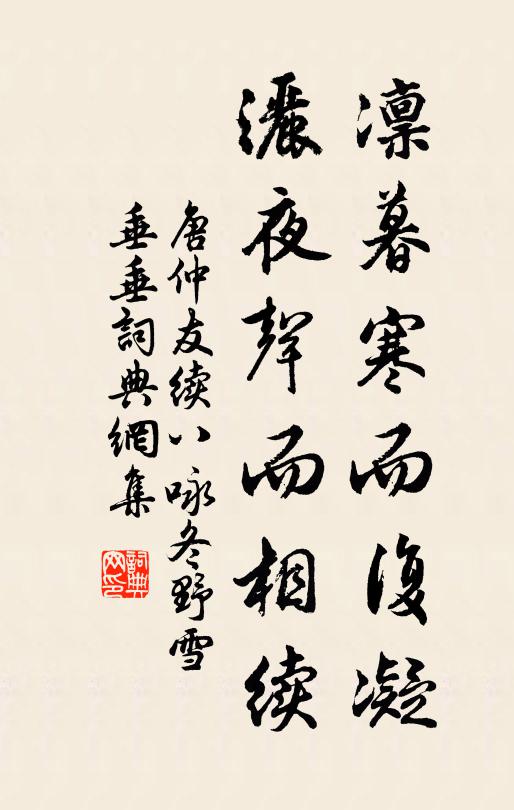 凛暮寒而復凝
灑夜聲而相續
唐仲友續八咏冬野雪
垂垂詞典網集
詞典网印